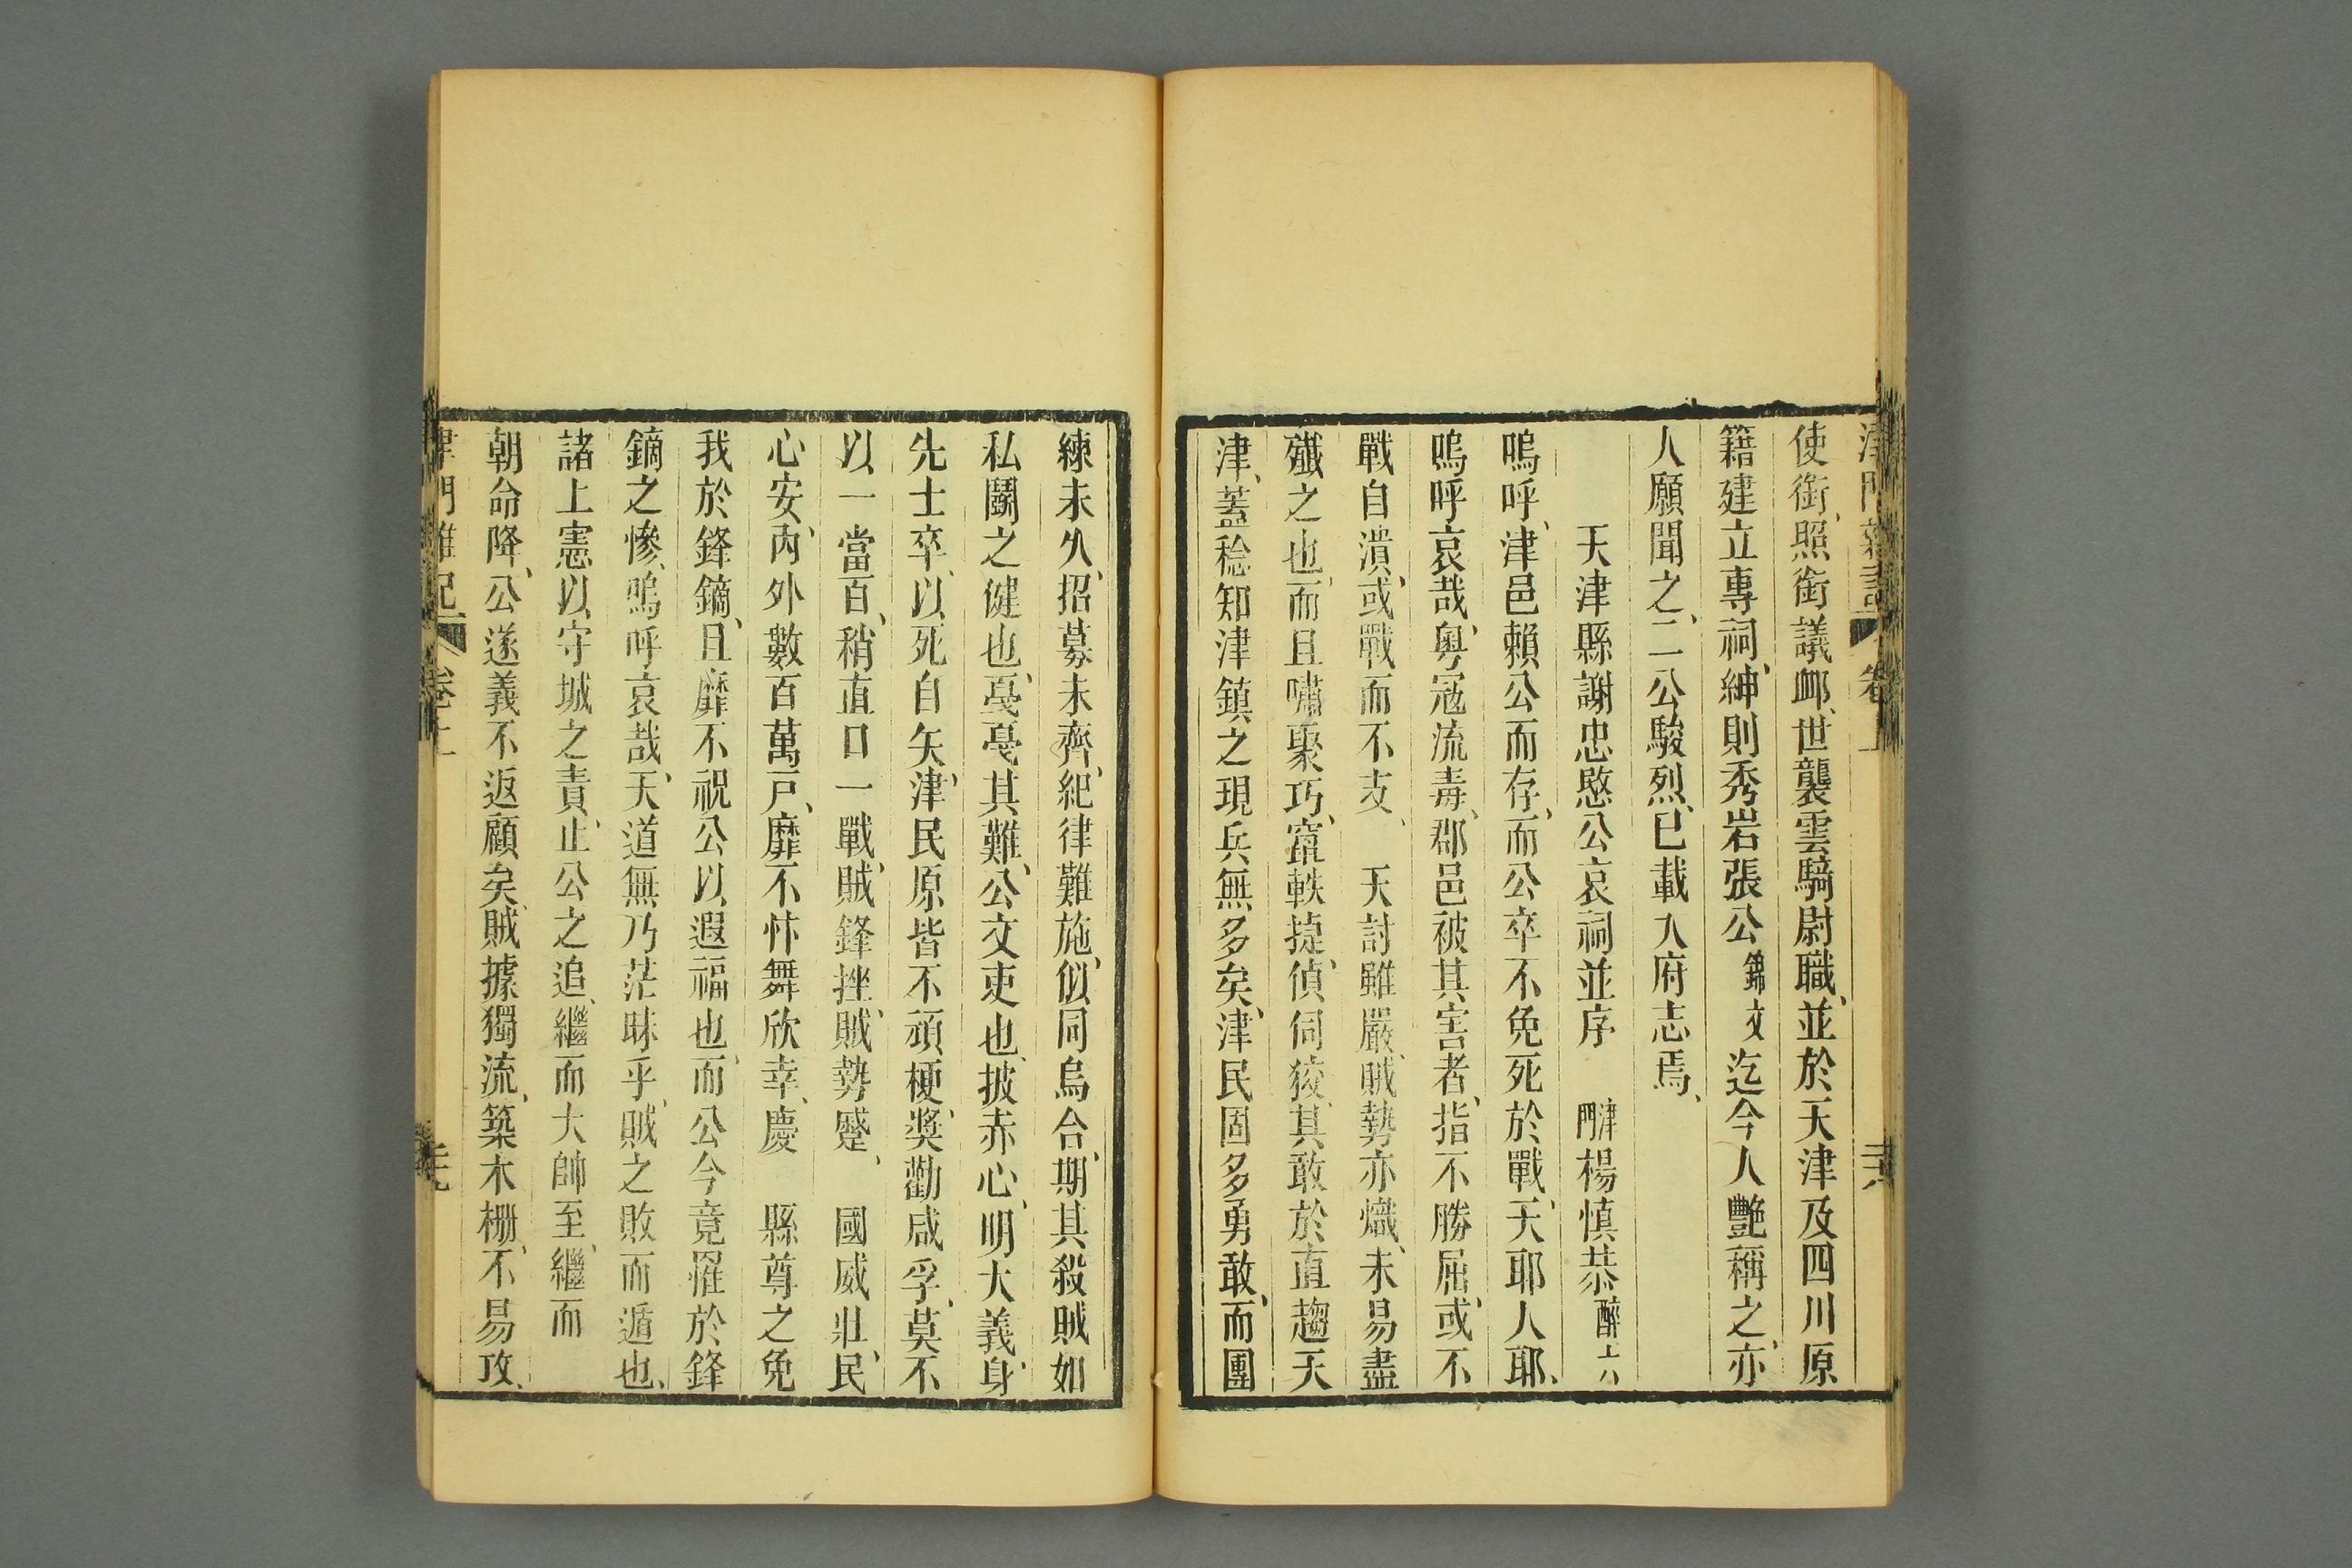 津門雜記 卷上 三六
使銜、照銜議卹、世襲雲騎尉職、並於天津及四川原
籍建立專祠、紳則秀岩張公錦文迄今人艷稱之、亦
人願聞之、二公駿烈、已載入府志焉、
天津縣謝忠愍公哀祠並序 津門楊慎恭醉六上
嗚呼、津邑賴公而存、而公卒不免死於戰、天耶人耶、
嗚呼哀哉、粵寇流毒、郡邑被其害者、指不勝屈、或不
戰自潰、或戰而不支、 天討雖嚴、賊勢亦熾、未易盡
殲之也、而且嘯聚巧、竄軼捷、偵伺狡、其敢於直趨天
津、蓋稔知津鎮之現兵無多矣、津民固多勇敢、而團
練未久、招募未齊、紀律難施、似同烏合、期其殺賊如
私鬭之健也、戞戞其難、公文吏也、披赤心、明大義、身
先士卒、以死自矢、津民原皆不頑梗、獎勸咸孚、莫不
以一當百、稍直口一戰、賊鋒挫、賊勢蹙、 國威壯、民
心安、內外數百萬戶、靡不忭舞欣幸、慶 縣尊之免
我於鋒鏑、且靡不祝公以遐福也、而公今竟罹於鋒
鏑之慘、嗚呼哀哉、天道無乃茫昧乎、賊之敗而遁也、
諸上憲以守城之責、止公之追、繼而大帥至、繼而
朝命降、公遂義不返顧矣、賊據獨流、築木柵、不易攻、
津門雜記 卷上 三七